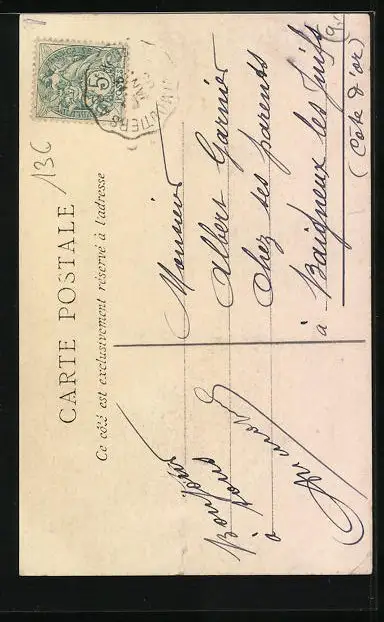 13C
CARTE POSTALE
Ce côté est exclusivement réservé à l'adresse
5
Bonjour
à tous
Monsieur
Albert Garnier
chez ses parents
à Baigneux les Juifs
(Côte d'or)